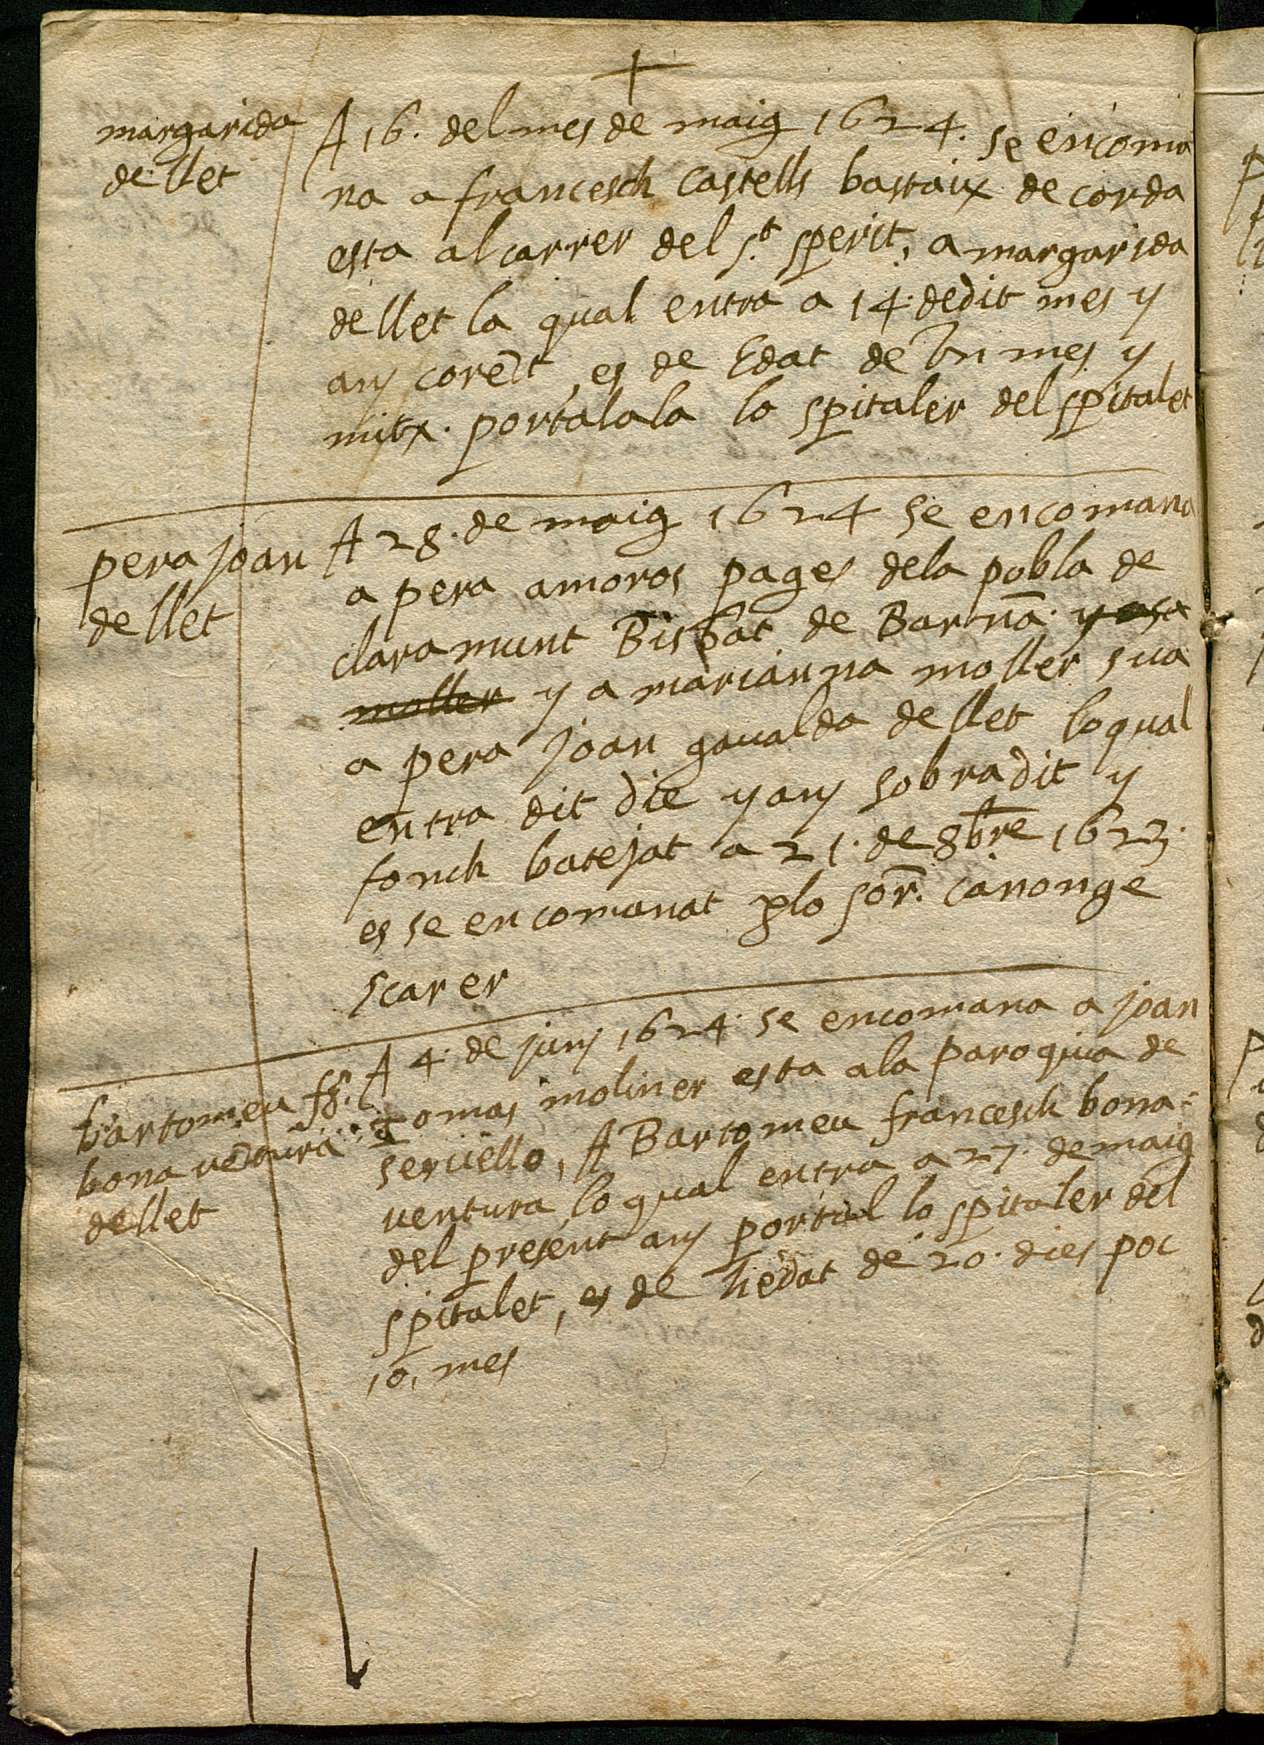 margarida
de llet
A 16. del mes de maig 1624. se encoma
na a francesch castells bastaix de corda
esta al carrer del s.t sperit, a margarida
de llet la qual entra a 14. dedit mes y
any corēt, es de Edat de vn mes y
mitx. portalala lo spitaler del spitalet
pera joan
de llet
A 28. de maig 1624 se encomana
a pera amoros pages dela pobla de
claramunt Bisbat de Barnā. y asa
moller y a marianna moller sua
a pera joan gaualda de llet loqual
entra dit die y any sobradit y
fonch batejat a 21. de 8bre 1623.
es se encomanat plo sor. canonge
scarer
bartomeu fs.
bona ventura
de llet
A 4. de juny 1624. se encomana a joan
tomas moliner esta ala paroquia de
seruello, A Bartomeu francesch bona=
ventura lo qual entra a 27. de maig
del present any portal lo spitaler del
spitalet, es de hedat de 20. dies poc
,o, mes